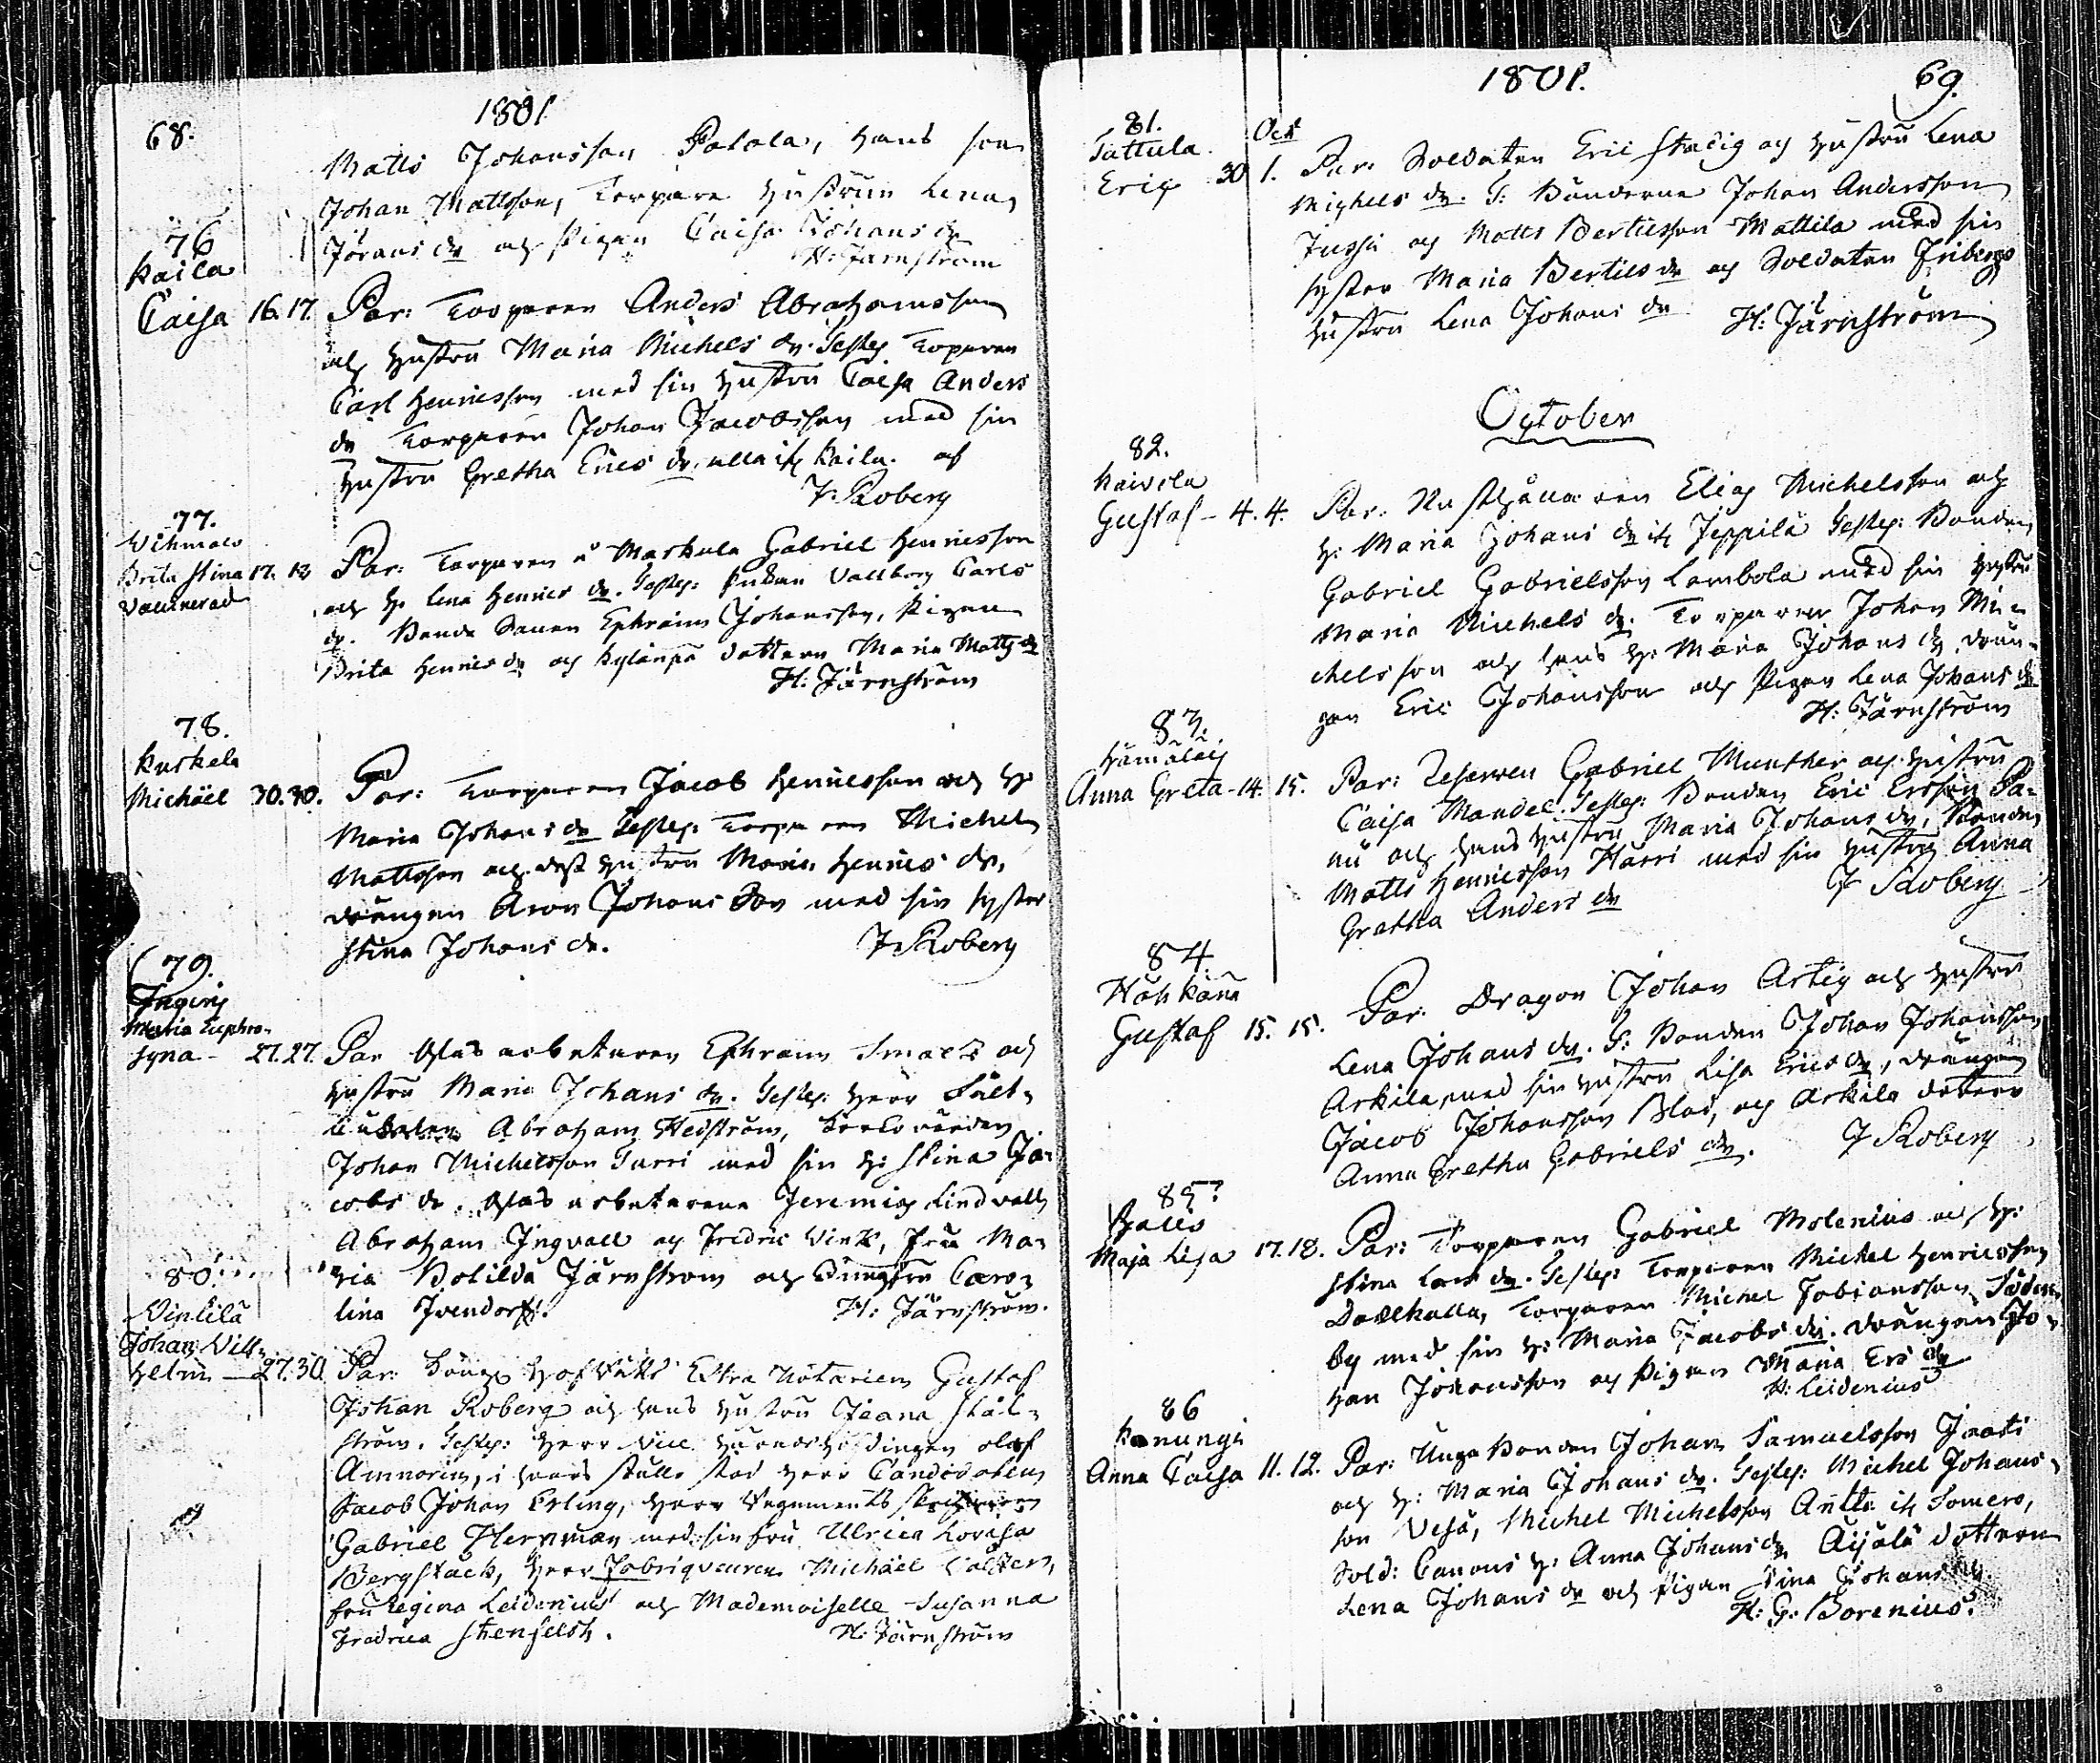 68.
1801
Matts Johansson Palola, hans son
Johan Mattsson, Torpare hustrun Lena
Jörans dr och Pigan Caisa Johans dr
H: Järnström
76
Kaila
Caisa 16. 17. Par: Torparen Anders Abrahamsson
och hustru Maria Michels dr. Testes Torparen
Carl Henricsson med sin hustru Caisa Anders
dr Torparen Johan Jacobsson med sin
hustru Gretha Erics dr, alla ifr Kaila. af
J. Roberg
77.
Vihmalo
Brita Stina 17. 18 Par. Torparen å Markula Gabriel Henricsson
och h. Lena Henrics dr. Testes: Enkan Vallborg Carls
dr. Bonde Sonen Ephraim Johansson, Pigan
Brita Henrics dr och Kylänpä dottern Maria Matts dr
H: Järnström
78.
Kurkela
Michäel 30. 30. Par: Torparen Jacob Henricsson och h:
Maria Johans dr Testes: Torparen Michel
Mattsson och dess hustru Maria Henrics dr,
drängen Aron Johans Son med sin syster
Stina Johans dr.
J. Roberg
79.
Ingeris
Maria Euphro-
syna - 27. 27. Par Glas arbetaren Ephraim Smaltz och
hustru Maria Johans dr. Testes: Herr Fält-
Abraham Hedström,
Johan Michelsson Turri med sin h: Stina Ja-
cobs dr. Glas arbetarena Jeremias Lindvall
Abraham Ingvall och Fredric Vink, Fru Ma-
ria Botilda Järnström och Jungfru Caro-
lina Ivendorff.
H: Järnström.
80.
Vinkilä
Johan Vill-
helm — 27. 30 Par: Kongl Hof Rätts Extra Notarien Gustaf
Johan Roberg och hans hustru Jeana Stål-
ström. Testes: Herr Vice Häradshöfdingen Olof
Amnorin, i hvars ställe stod Herr Candidaten
Jacob Johan Erling, Herr Regements Skrifvaren
Gabriel Hernman med sin fru Ulrica Lovisa
Bergstäck, Herr Fabriqueuren Michäel
fru Regina Leidenius och Mademoiselle Susanna
Fredrica Stenfelt.
H: Järnström
1801.
69.
81.
Tattula.
Oct
Eric 30 1. Par: Soldaten Eric Stadig och hustru Lena
Michels dr. T: Bönderne Johan Andersson
Jussi och Matts Bertilsson Mattila med sin
syster Maria Bertils dr och Soldaten Fribergs
hustru Lena Johans dr
H: Järnström
October
82.
Kaivola
Gustaf - 4. 4. Par. Rusthållaren Elias Michelsson och
h: Maria Johans dr ifr Jeppilä Testes: Bonden
Gabriel Gabrielsson Lambola med sin hustru
Maria Michels dr. Torparen Johan Mi-
chelsson och hans h: Maria Johans dr, drän-
gen Eric Johansson och Pigan Lena Johans dr
H: Järnström
83.
Hämälä
Anna Greta - 14. 15. Par: Reserven Gabriel Munther och hustru
Caisa Mandel. Testes: Bonden Eric Ersson Pa-
nu och hans hustru Maria Johans dr, Bonden
Matts Henricsson Harri med sin hustru Anna
Gretha Anders dr
J Roberg
84
Häikänä
Gustaf 15. 15. Par. Dragon Johan Artig och hustru
Lena Johans dr. T: Bonden Johan Johansson
Arkila, med sin hustru Lisa Erics dr, drängen
Jacob Johansson Blad, och Arkila dottern
Anna Gretha Gabriels dr.
J Roberg
85
Maja Lisa 17. 18. Par: Torparen Gabriel Molenius och h:
Stina Lars dr. Testes: Torparen Michel Henricsson
Dahlkulla, Torparen Michel Tobiansson Söder-
by med sin h: Maria Jacobs dr. drängen Jo-
han Johansson och Pigan Maria Ers dr
H: Leidenius
86
Kanungi
Anna Caisa 11. 12. Par: Unga Bonden Johan Samuelsson Jaati
och h: Maria Johans dr. Testes: Michel Johans-
son Vesa, Michel Michelsson Antti ifr Somero,
Sold: Canons h: Anna Johans dr, Äijälä dottern
Lena Johans dr och Pigan Stina Johans dr.
H: G: Borenius.